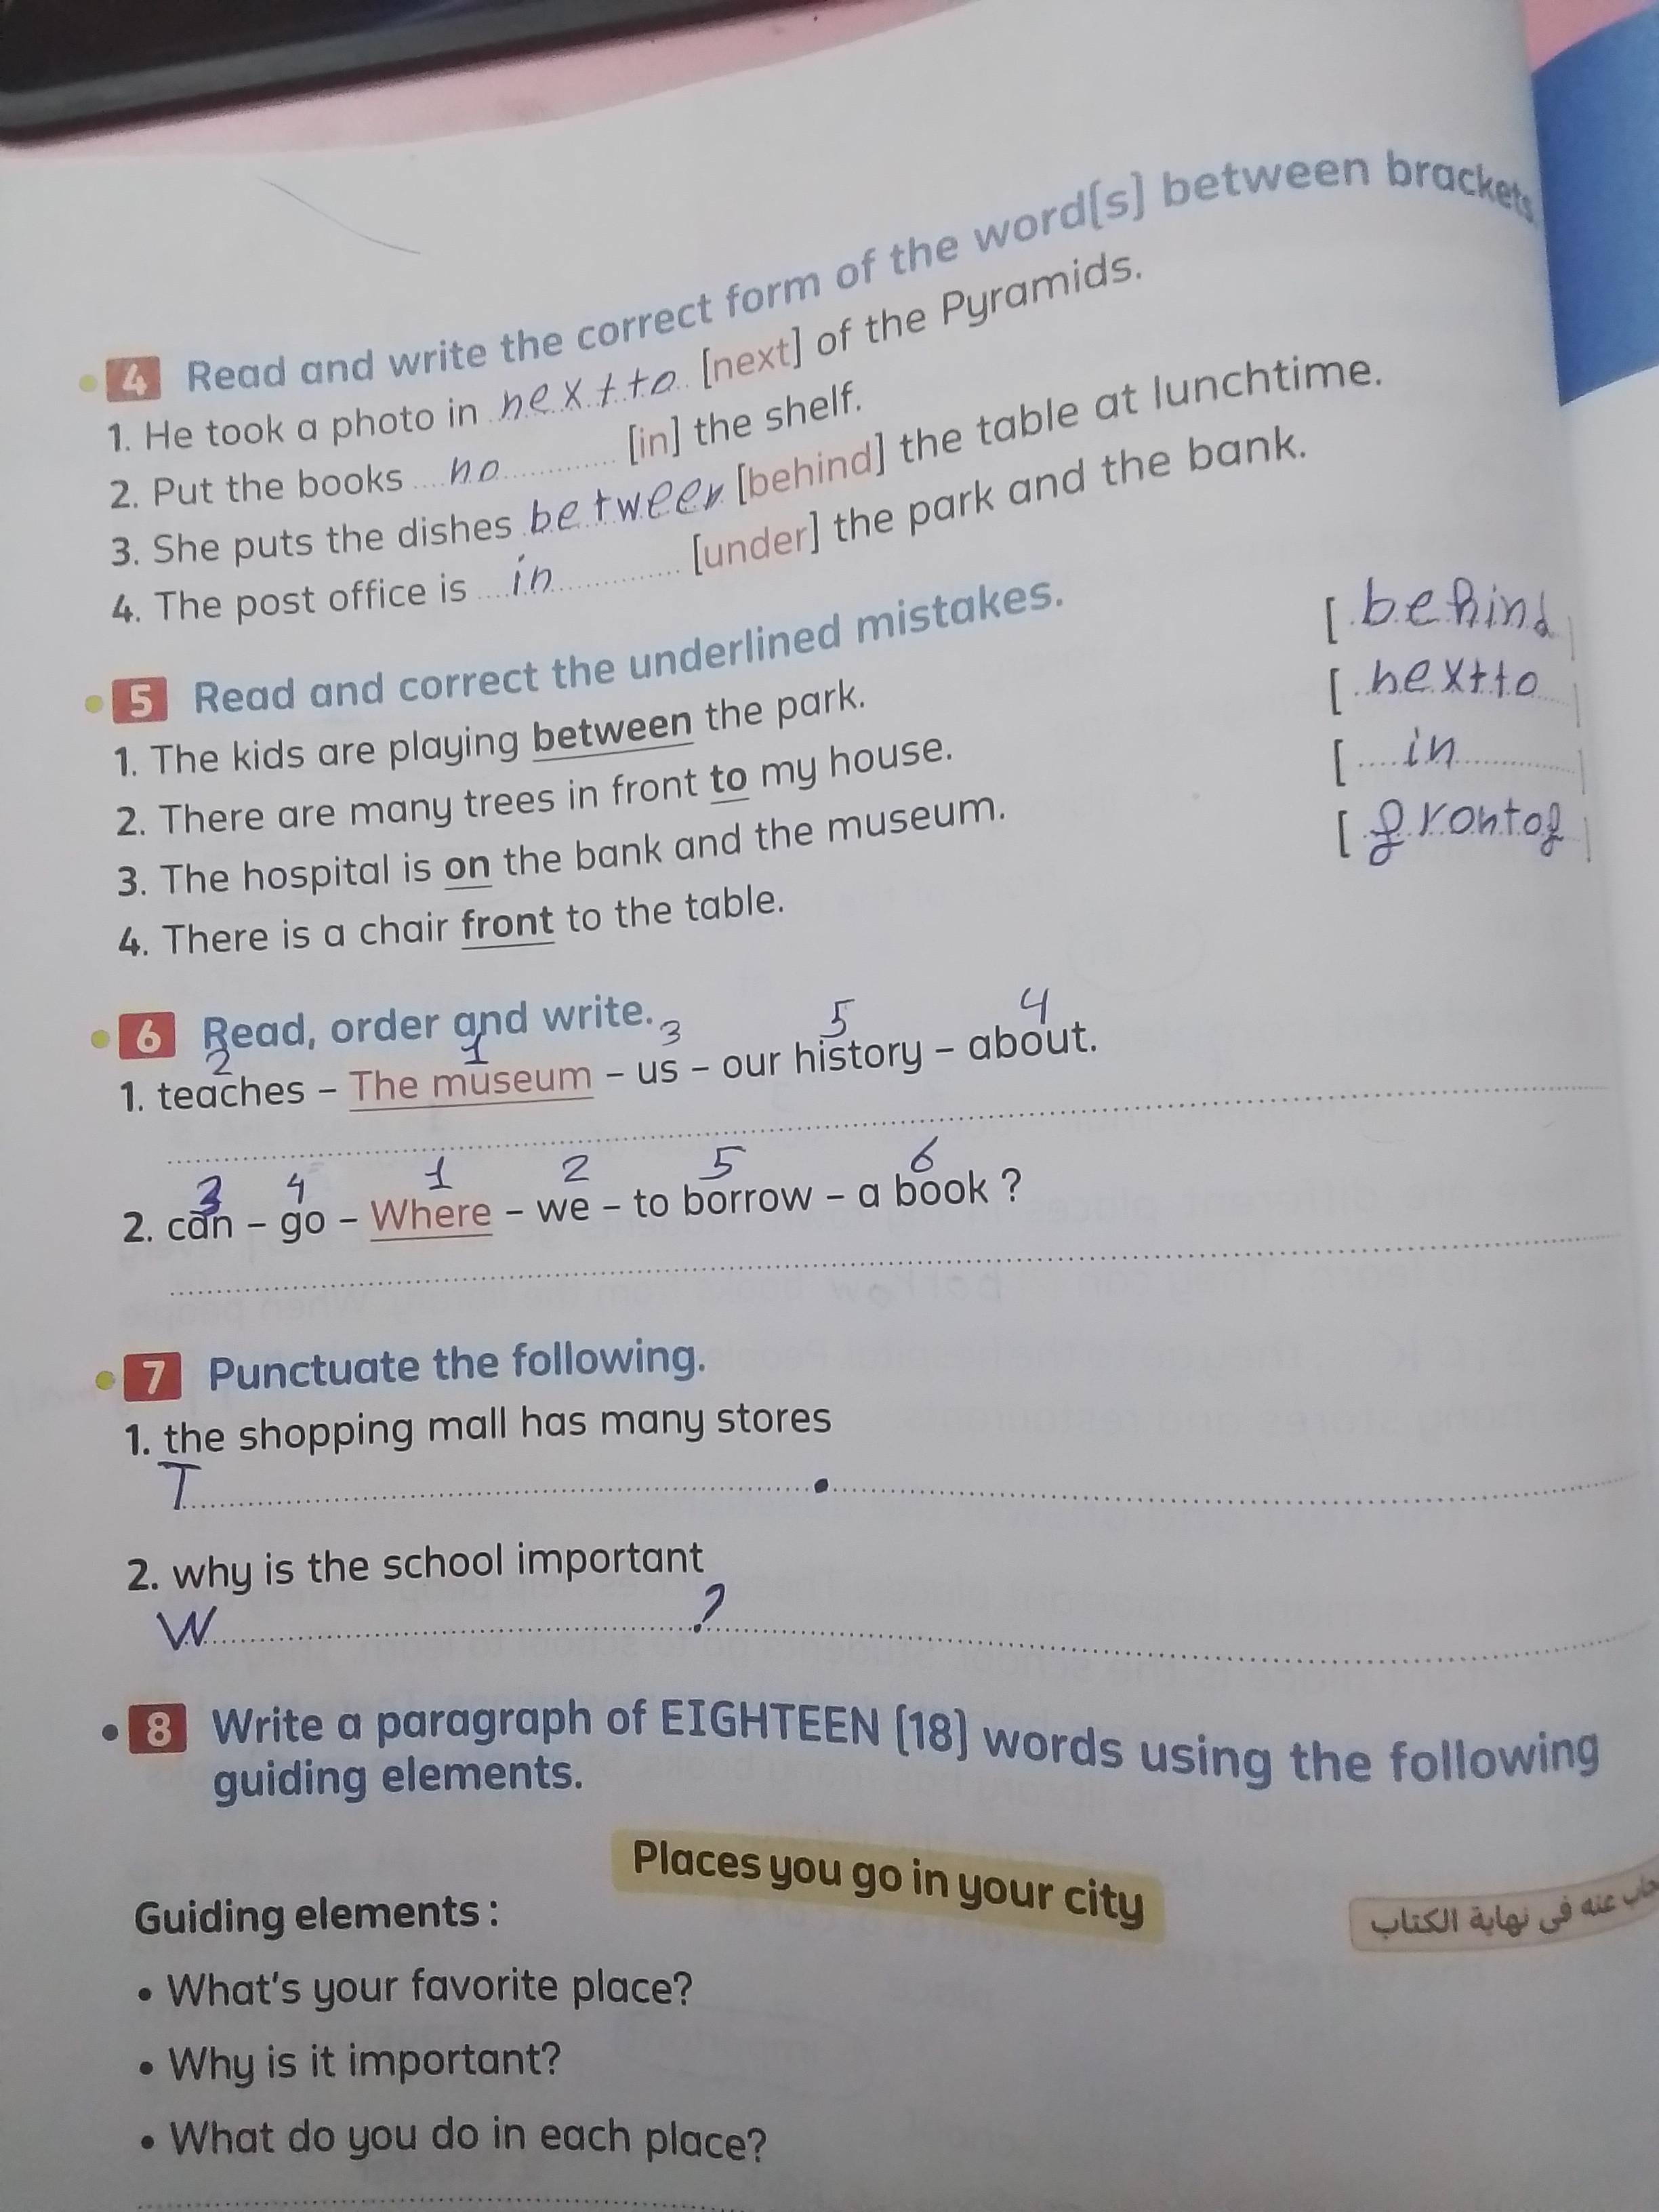 4 Read and write the correct form of the word[s] between brackets
1. He took a photo in nextto [next] of the Pyramids.
2. Put the books no [in] the shelf.
3. She puts the dishes between [behind] the table at lunchtime.
4. The post office is in [under] the park and the bank.
5 Read and correct the underlined mistakes.
1. The kids are playing between the park. [behind]
2. There are many trees in front to my house. [nextto]
3. The hospital is on the bank and the museum. [in]
4. There is a chair front to the table. [frontof]
6 Read, order and write.
2 1 3 5 4
1. teaches – The museum – us – our history – about.
3 4 1 2 5 6
2. can – go – Where – we – to borrow – a book ?
7 Punctuate the following.
1. the shopping mall has many stores
T .
2. why is the school important
W ?
8 Write a paragraph of EIGHTEEN [18] words using the following
guiding elements.
Places you go in your city
Guiding elements :
عنه فى نهاية الكتاب
• What's your favorite place?
• Why is it important?
• What do you do in each place?